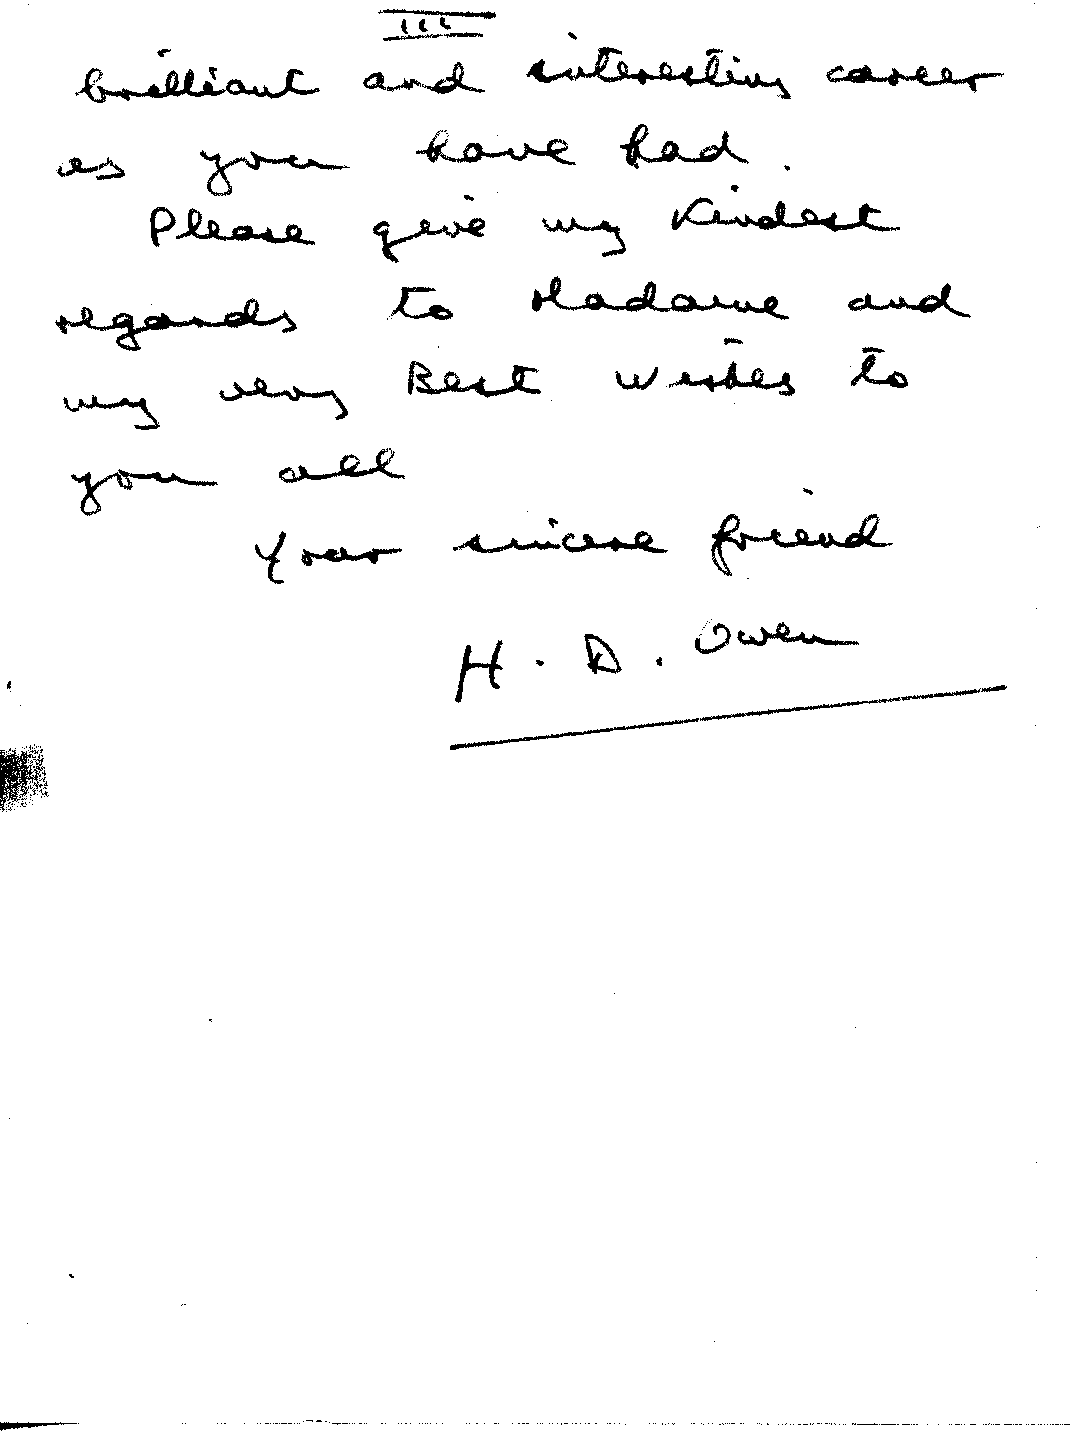 III
brilliant and interesting career
as you have had.
Please give my Kindest
regards to Madame and
my very Best Wishes to
you all
Your sincere friend
H. D. Owen